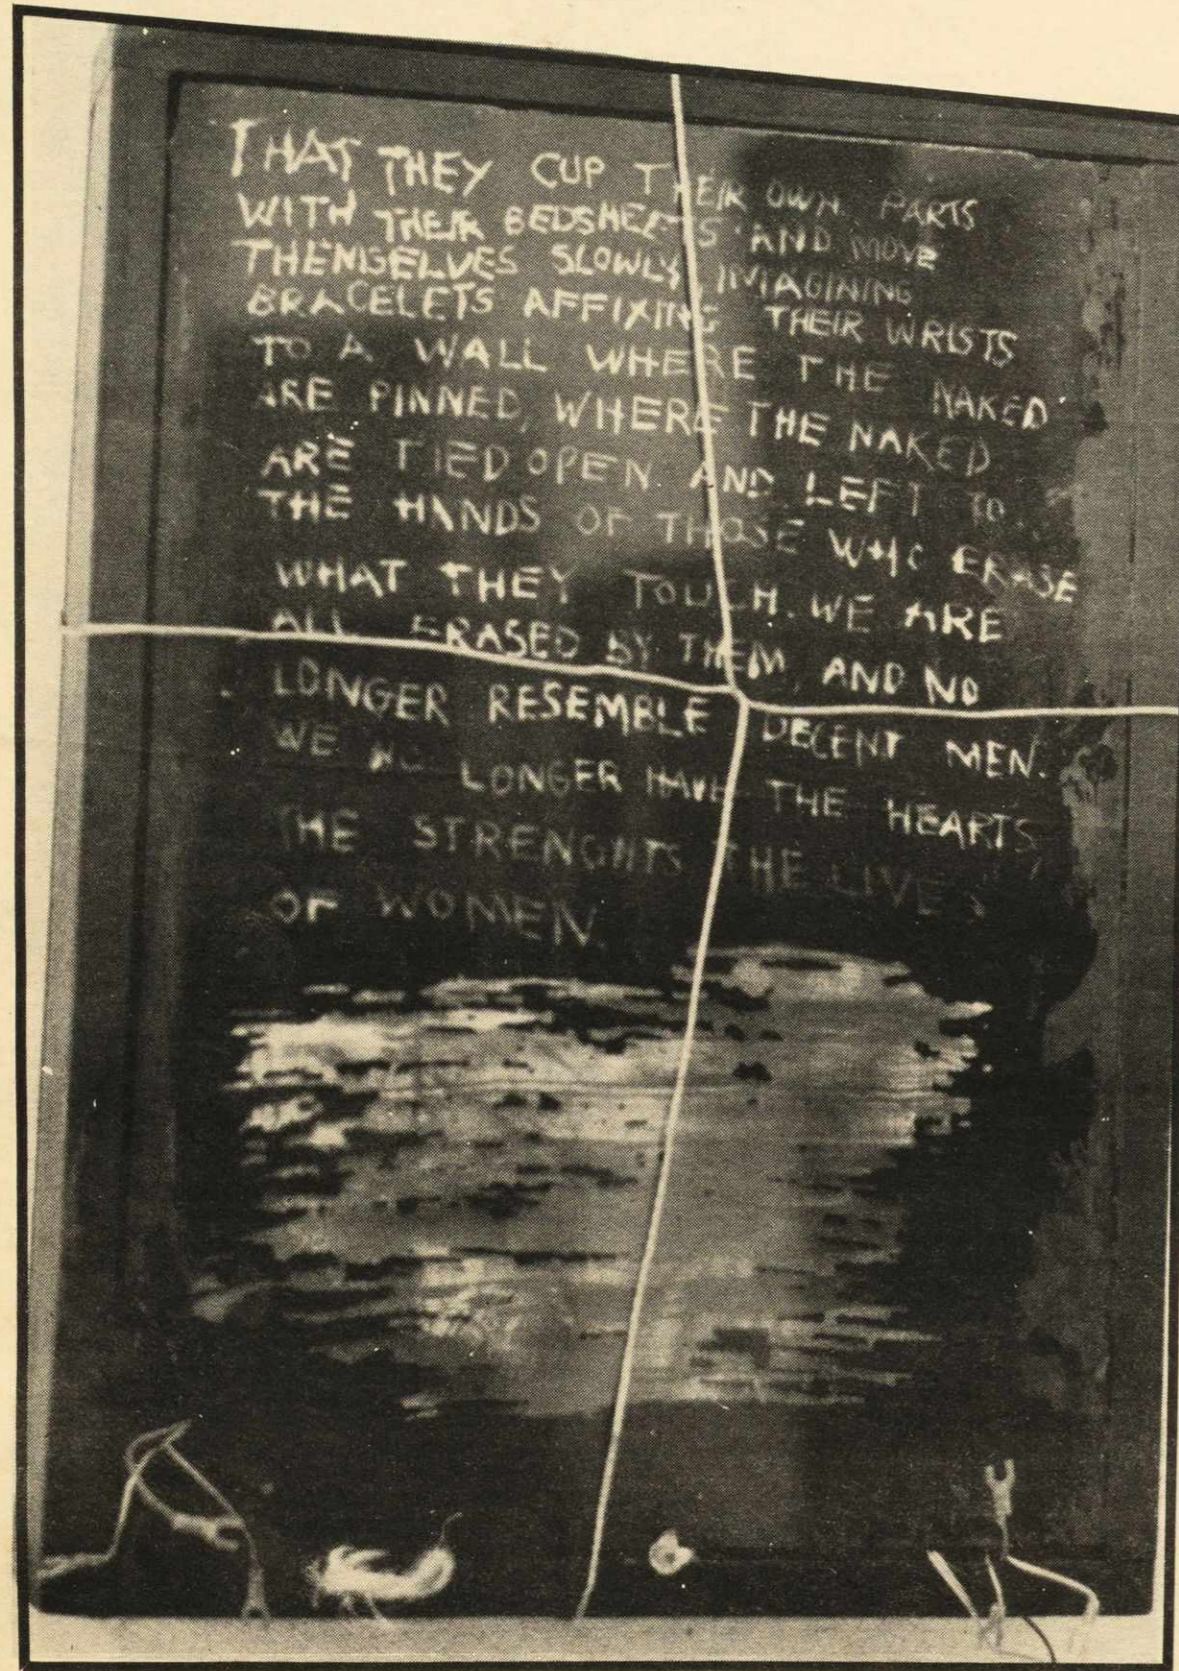 THAT THEY CUP THEIR OWN PARTS
WITH THEIR BEDSHEETS AND MOVE
THEMSELVES SLOWLY, IMAGINING
BRACELETS AFFIXING THEIR WRISTS
TO A WALL WHERE THE NAKED
ARE PINNED, WHERE THE NAKED
ARE TIED OPEN AND LEFT TO
THE HANDS OF THOSE WHO ERASE
WHAT THEY TOUCH. WE ARE
ALL ERASED BY THEM, AND NO
LONGER RESEMBLE DECENT MEN.
WE NO LONGER HAVE THE HEARTS,
THE STRENGHTS THE LIVES
OF WOMEN.